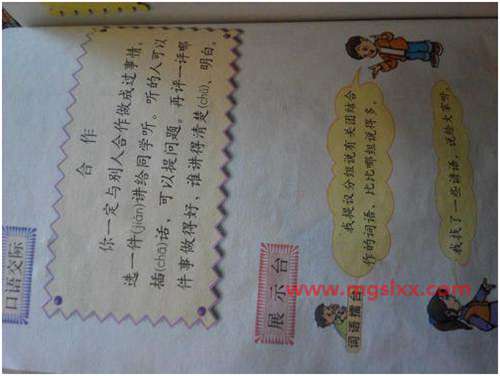 口语交际
合作
你一定与别人合作做成过事情，
选一件(jiàn)讲给同学听。听的人可以
插(chā)话、可以提问题。再评一评哪
件事做得好，谁讲得清楚(chǔ)、明白。
展示台
我提议分组说有关团结合
作的词语，比比哪组说得多。
我找了一些谚语，说给大家听。
词语擂台
www.mgslxx.com